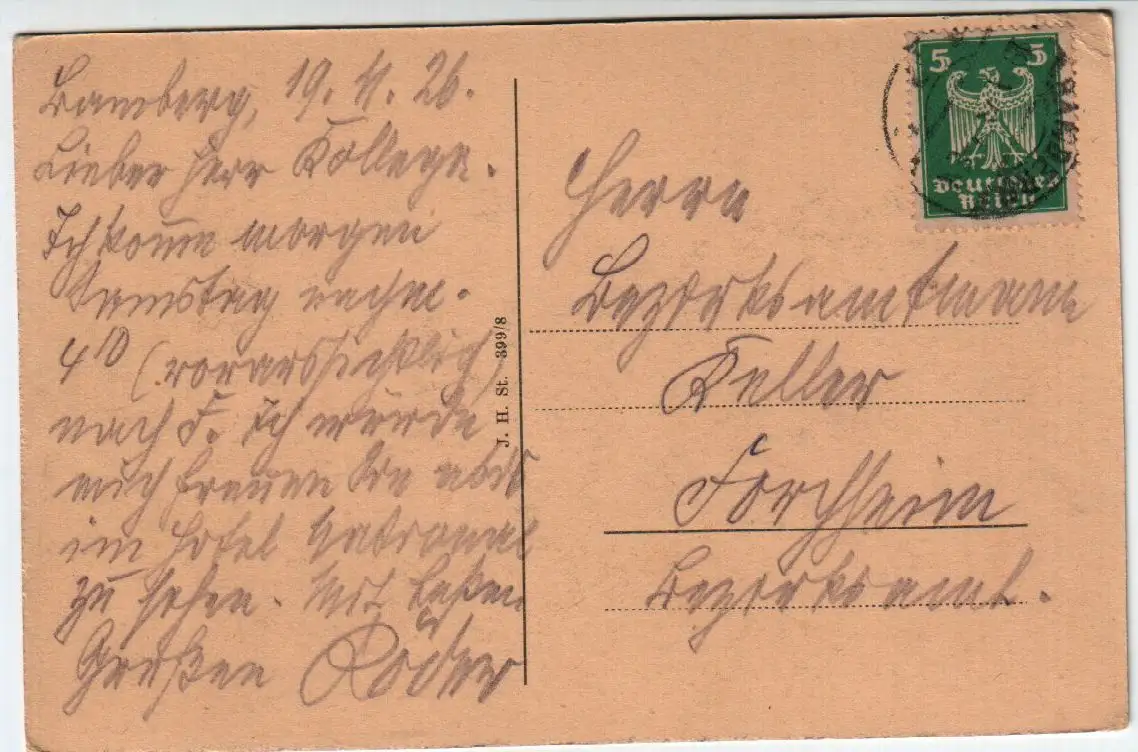 Bamberg, 19. 11. 26.
Lieber Herr Kollege.
Ich komme morgen
Samstag nachm.
4 10 (voraussichtlich)
nach F. Ich würde
mich freuen Sie
im Hotel National
zu sehen. Mit besten
Grüßen Röder
J. H. St. 399/8
5 5
Deutsches
Reich
Herrn
Bezirksamtmann
Keller
Forchheim
Bezirksamt.